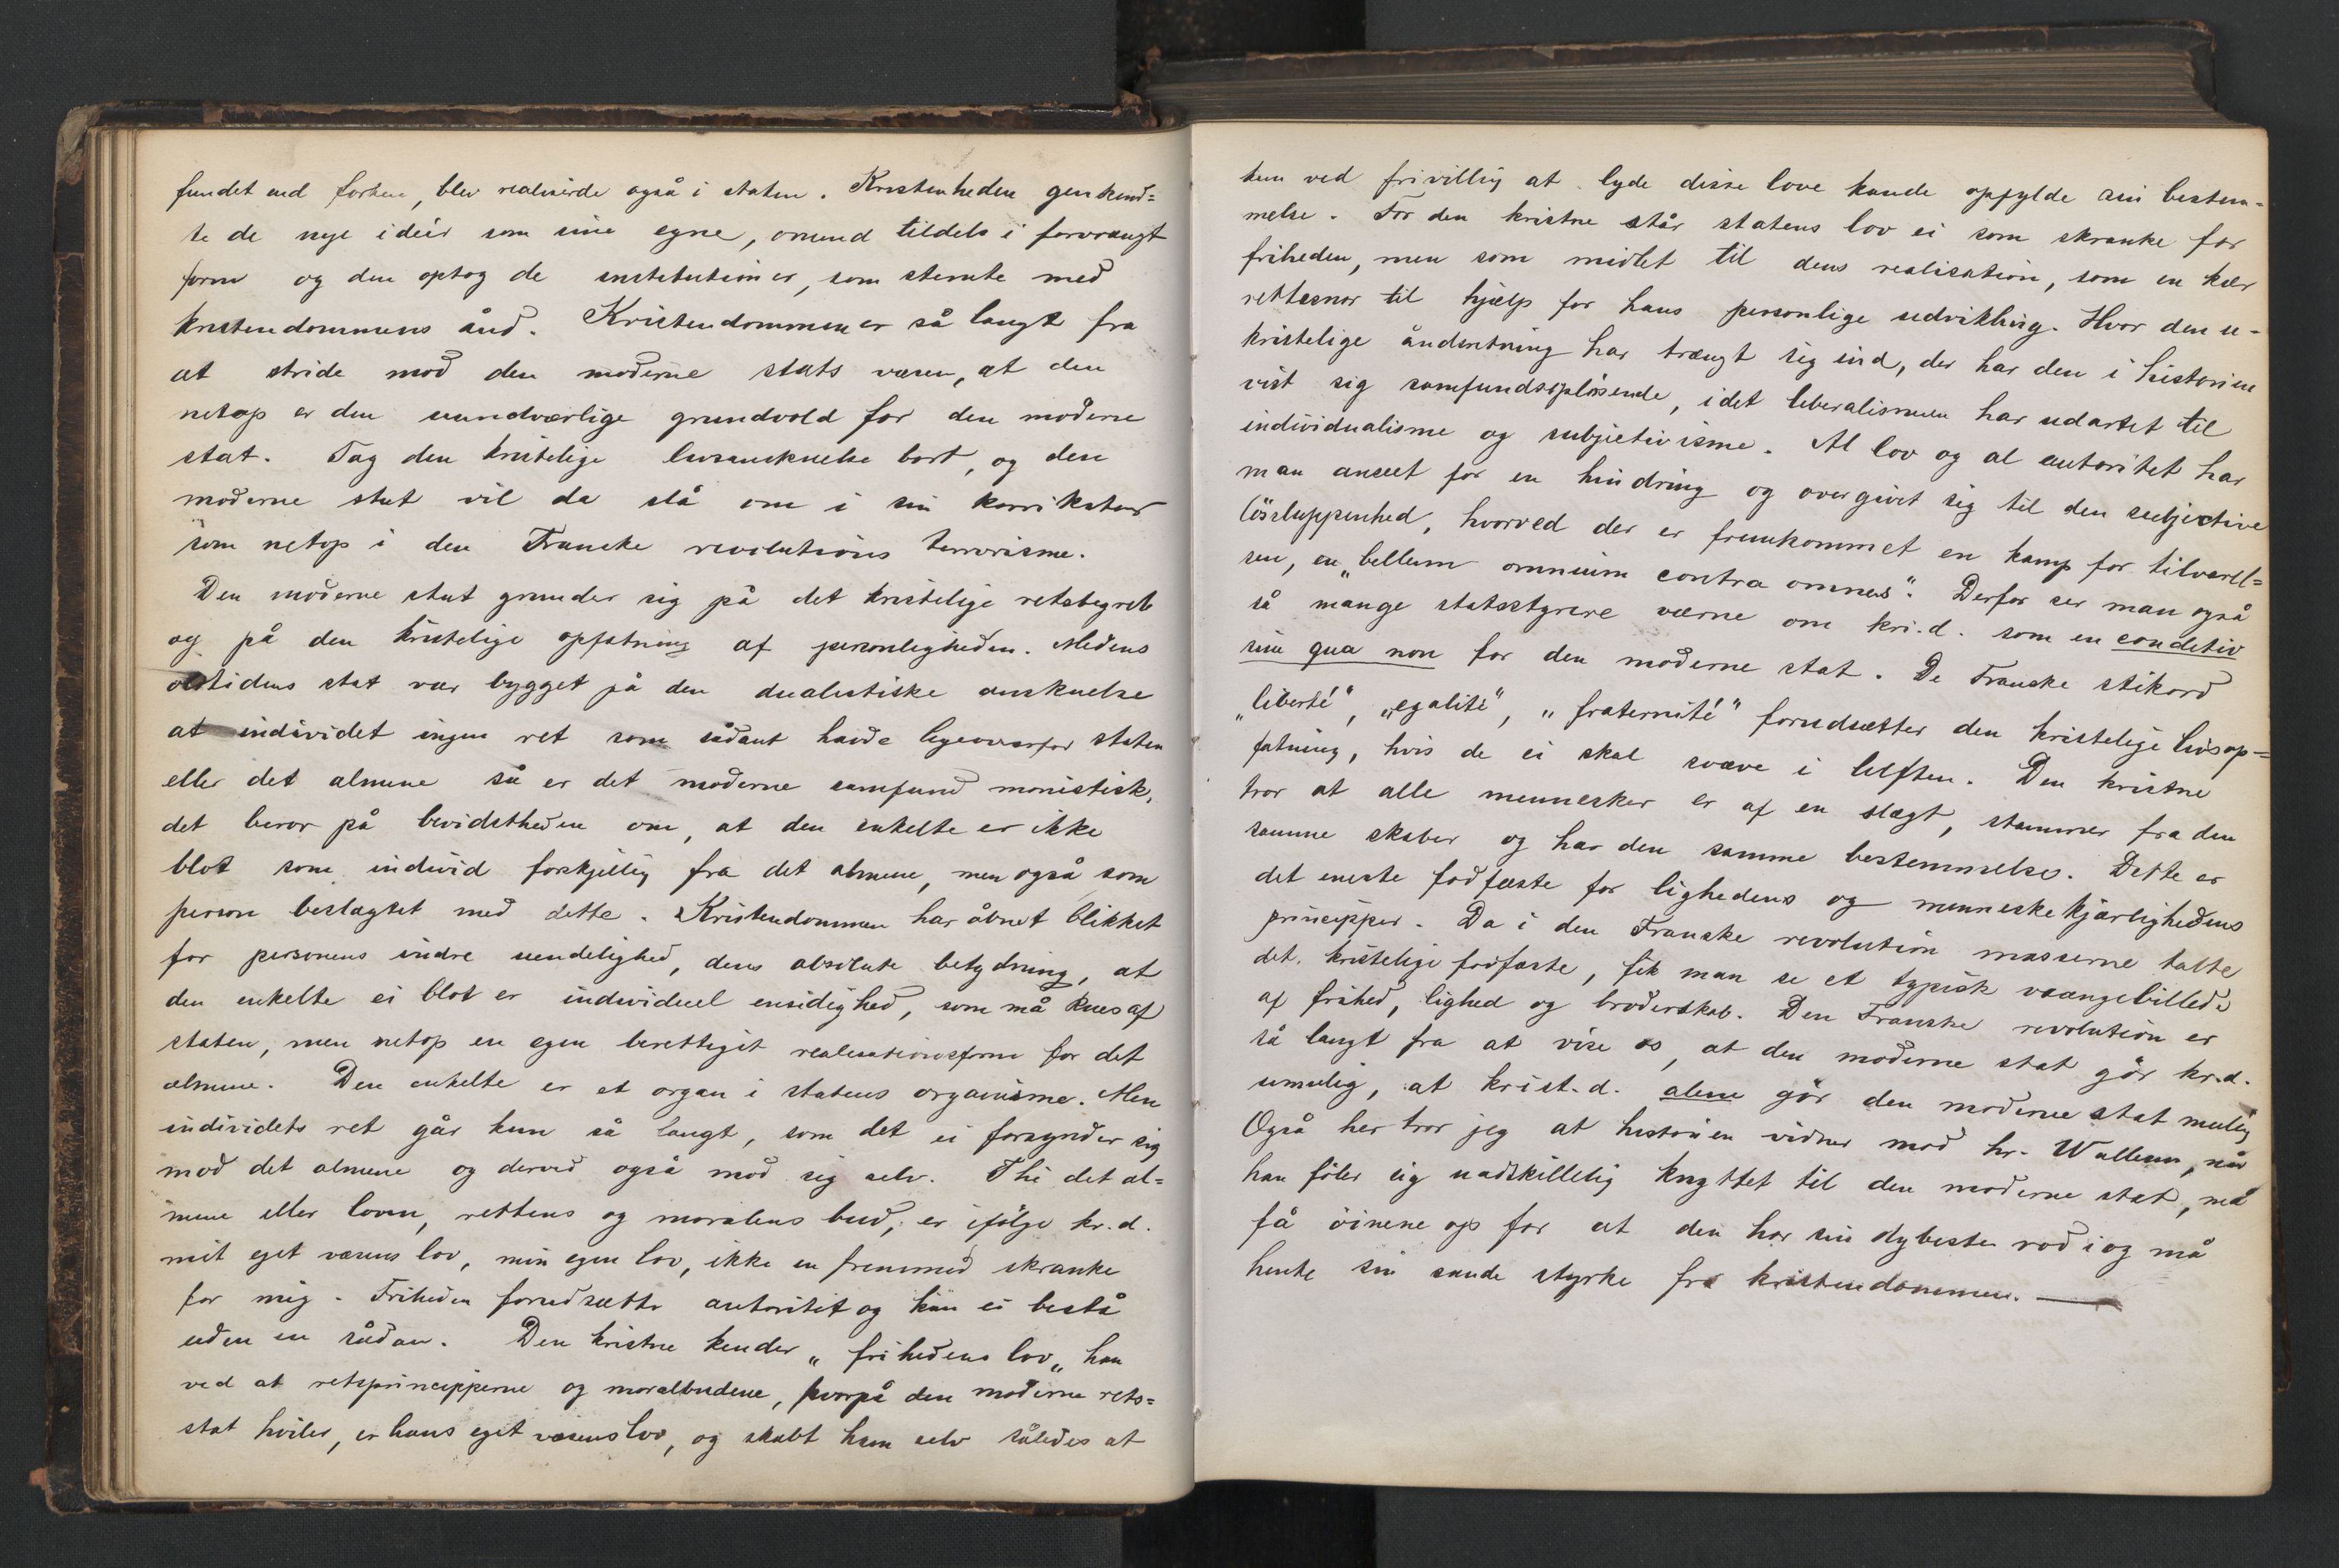 fundet end forhen, blev realiserde også i staten. Kristenheden genkend=
te de nye idéer som sine egne, omend tildels i forvrængt
form og den optog de institutioner, som stemte med
kristendommens ånd. Kristendommen er så langt fra
at stride mod den moderne stats væsen, at den
netop er den uundværlige grundvold for den moderne
stat. Tag den kristelige livsanskuelse bort, og den
moderne stat vil da slå om i sin karrikatur
som netop i den Franske revolutions terrorisme.
Den moderne stat grunder sig på det kristelige retsbegreb
og på den kristelige opfatning af personligheden. Medens
oldtidens stat var bygget på den dualistiske anskuelse
at individet ingen ret som sådant havde ligeoverfor staten
eller det almene så er det moderne samfund monistisk,
det beror på bevidstheden om, at den enkelte er ikke
blot som individ forskjellig fra det almene, men også som
person beslægtet med dette. Kristendommen har åbnet blikket
for personens indre uendelighed, dens absolute betydning, at
den enkelte ei blot er individuel ensidighed, som må kues af
staten, men netop en egen berettiget realisationsform for det
almene. Den enkelte er et organ i statens organisme. Men
individets ret går kun så langt, som det ei forsynder sig
mod det almene og derved også mod sig selv. Thi det al=
mene eller loven, rettens og moralens bud, er ifölge kr.d.
mit eget væsens lov, min egen lov, ikke en fremmed skranke
for mig. Friheden forudsætte autoritet og kan ei bestå
uden en sådan. Den kristne kender „frihedens lov„ han
ved at retsprincipperne og moralbudene, hvorpå den moderne rets=
stat hviler, er hans eget væsens lov, og skabt ham selv således at
kun ved frivillig at lyde disse love kunde opfylde sin bestem=
melse. For den kristne står statens lov ei som skranke for
friheden, men som midlet til dens realisation, som en kær
rettesnor til hjælp for hans personlige udvikling. Hvor den u-
kristelige åndsretning har trængt sig ind, der har den i historien
vist sig samfundsopløsende, idet liberalismen har udartet til
individualisme og subjectivisme. Al lov og al autoritet har
man anseet for en hindring og overgivet sig til den subjective
lösluppenhed, hvorved der er fremkommet en kamp for tilværel=
sen, en „bellum omnium contra omnes“. Derfor ser man også
så mange statsstyrere værne om kri.d. som en conditio
sine qua non for den moderne stat. De Franske stikord
„liberté“, „egalité“, „fraternité“ forudsætter den kristelige livsop=
fatning, hvis de ei skal svæve i luften. Den kristne
tror at alle mennesker er af en slægt, stammer fra den
samme skaber og har den samme bestemmelse. Dette er
det eneste fodfæste for lighedens og menneskekjærlighedens
principper. Da i den Franske revolution masserne tabte
det kristelige fodfæste, fik man se et typisk vrængebillede
af frihed, lighed og broderskab. Den Franske revolution er
så langt fra at vise os, at den moderne stat gör kr.d.
umulig, at krist.d. alene gör den moderne stat mulig
Også her tror jeg at historien vidner mod hr. Wullum, når
han föler sig uadskillelig knyttet til den moderne stat, må
få öinene op for at den har sin dybeste rod i og må
hente sin sande styrke fra kristendommen. —